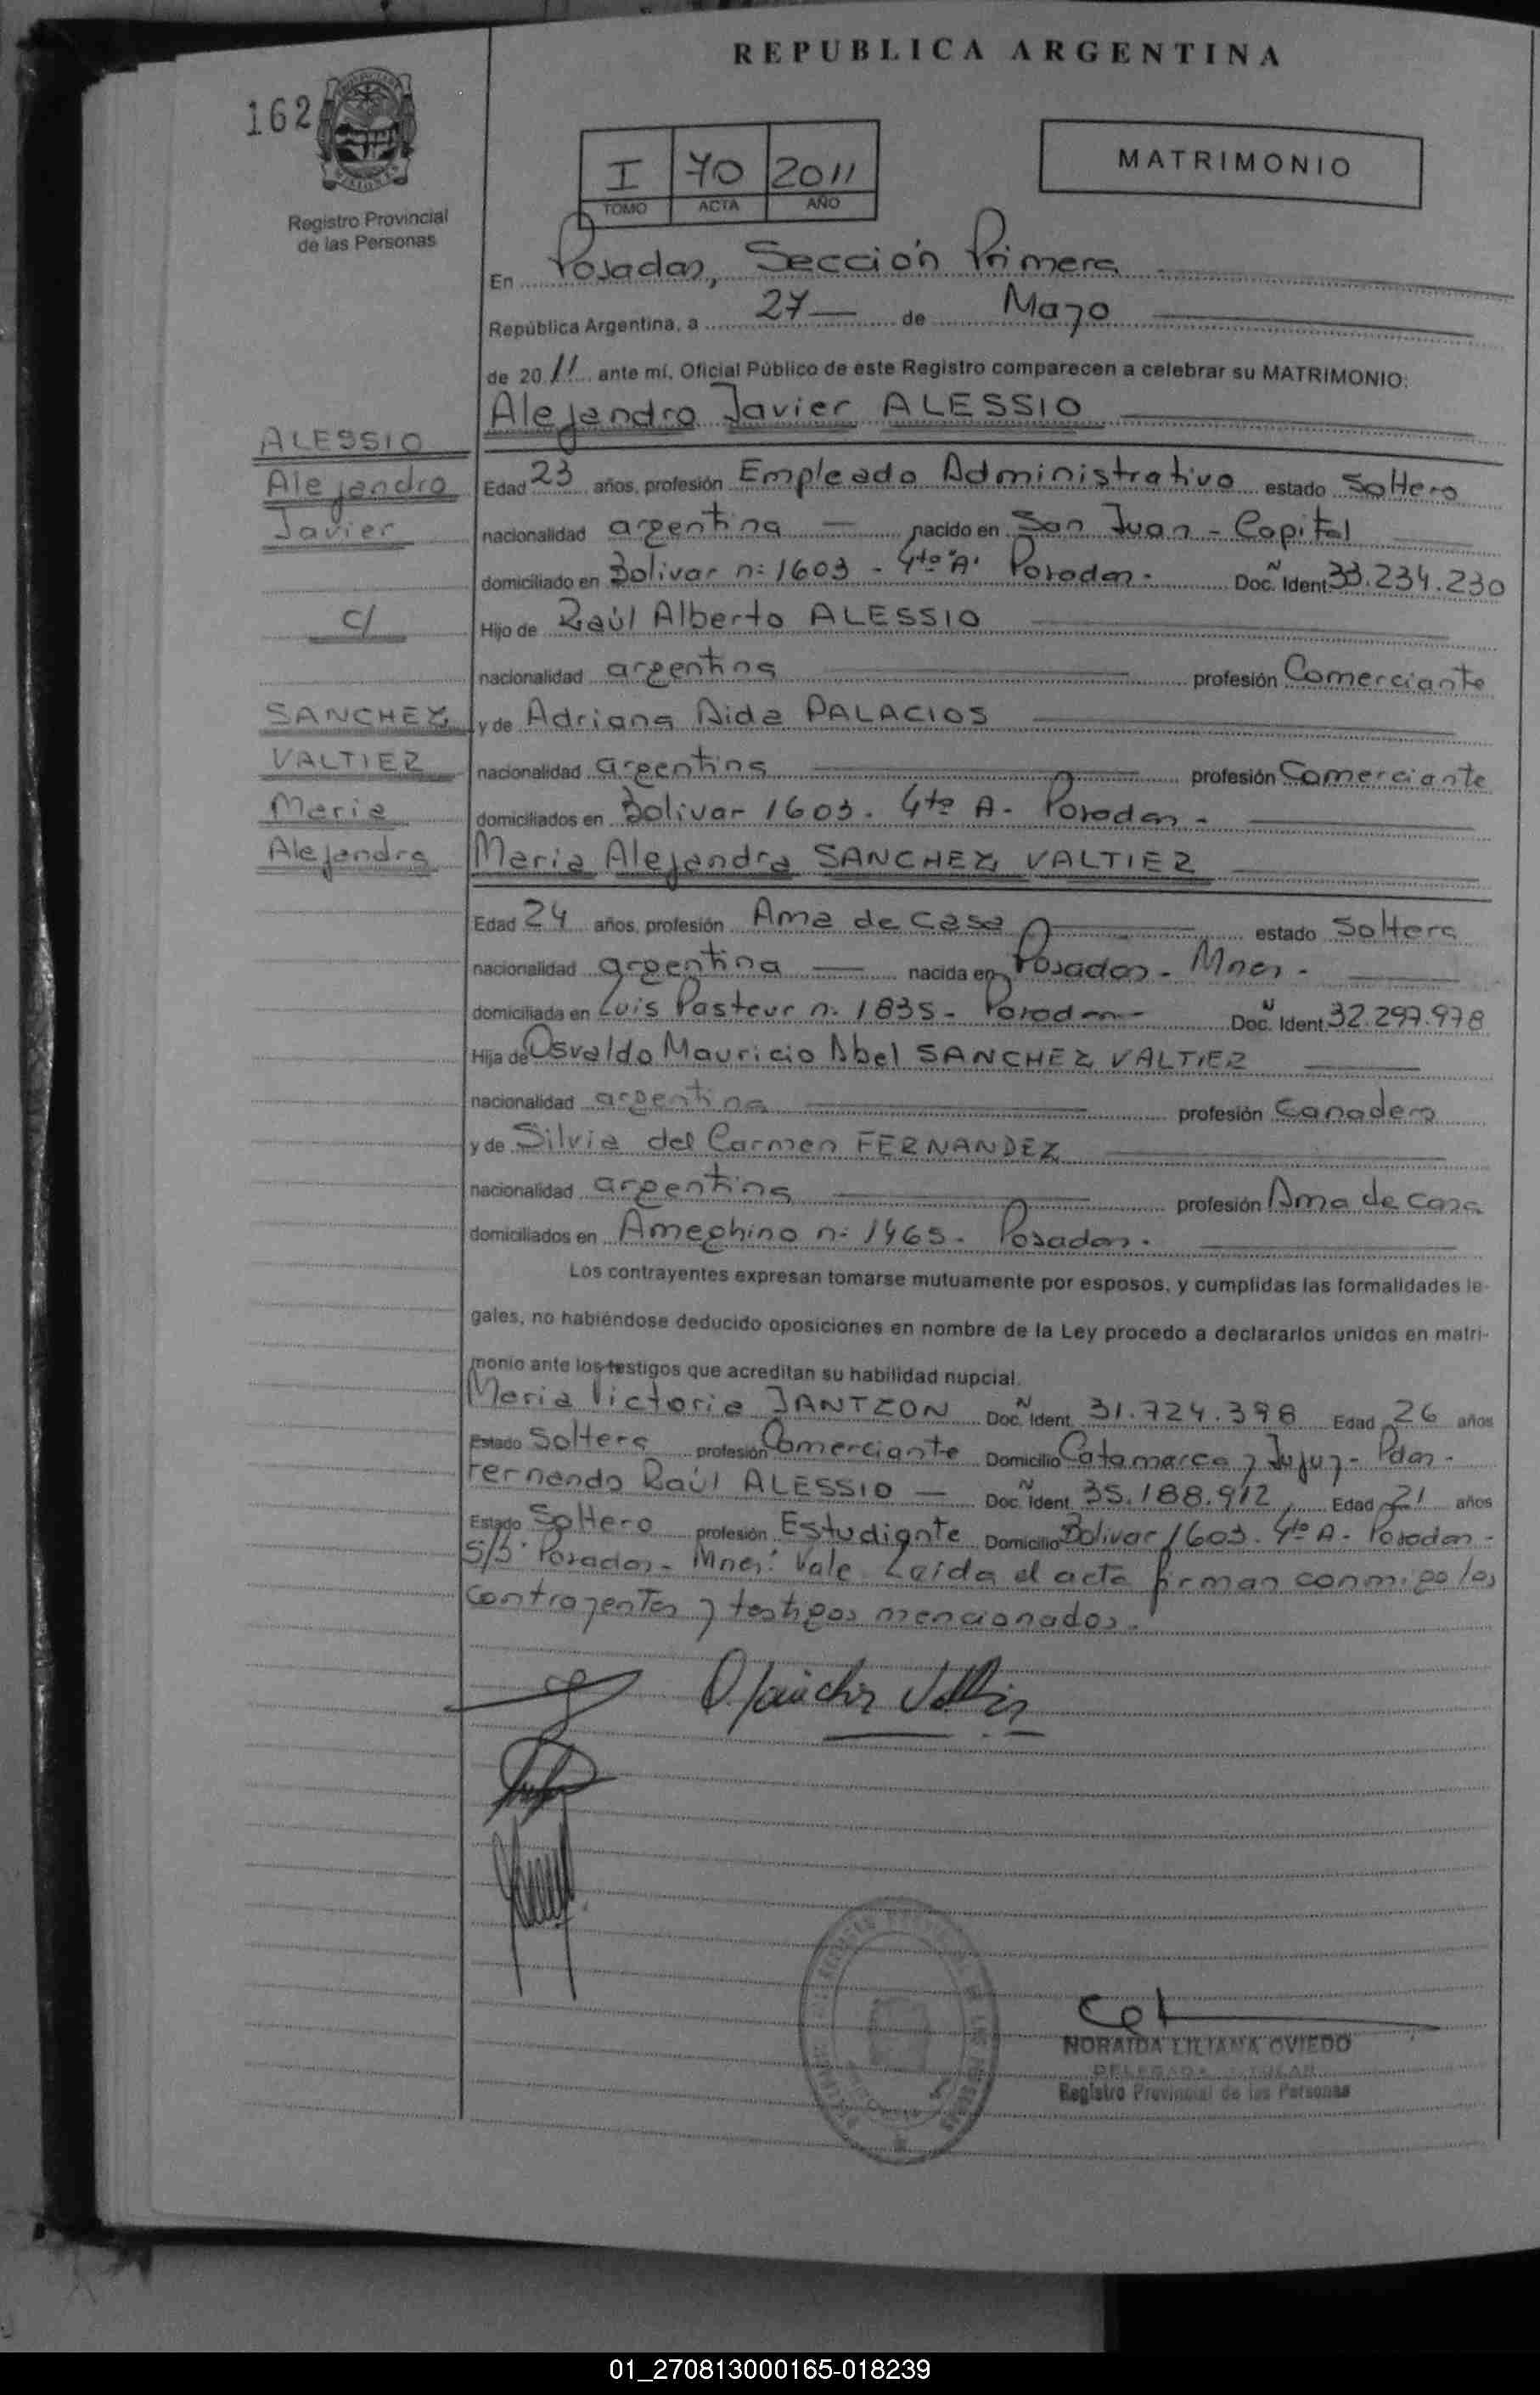 REPUBLICA ARGENTINA
162
Registro Provincial
de las Personas
I 70 2011
TOMO ACTA AÑO
MATRIMONIO
En Posadas, Sección Primera
República Argentina, a 27 de Mayo
de 2011 ante mí, Oficial Público de este Registro comparecen a celebrar su MATRIMONIO:
Alejandro Javier ALESSIO
ALESSIO
Alejandro
Javier
c/
SANCHEZ
VALTIER
Maria
Alejandra
Edad 23 años, profesión Empleado Administrativo estado Soltero
nacionalidad argentina nacido en San Juan - Capital
domiciliado en Bolivar n: 1603 - 4to "A" Posadas. Doc. Ident. 33.234.230
Hijo de Raúl Alberto ALESSIO
nacionalidad argentina profesión Comerciante
y de Adriana Aida PALACIOS
nacionalidad argentina profesión Comerciante
domiciliados en Bolivar 1603. 4to A. Posadas -
Maria Alejandra SANCHEZ VALTIER
Edad 24 años, profesión Ama de casa estado Soltera
nacionalidad argentina nacida en Posadas - Mnes.
domiciliada en Luis Pasteur n: 1835 - Posadas Doc. Ident. 32.297.978
Hija de Osvaldo Mauricio Abel SANCHEZ VALTIER
nacionalidad argentina profesión Ganadero
y de Silvia del Carmen FERNANDEZ
nacionalidad argentina profesión Ama de casa
domiciliados en Ameghino n: 1465. Posadas.
Los contrayentes expresan tomarse mutuamente por esposos, y cumplidas las formalidades le-
gales, no habiéndose deducido oposiciones en nombre de la Ley procedo a declararlos unidos en matri-
monio ante los testigos que acreditan su habilidad nupcial.
Maria Victoria JANTZON Doc. Ident. 31.724.398 Edad 26 años
Estado Soltera profesión Comerciante Domicilio Catamarca y Jujuy - Pdas.
Fernando Raúl ALESSIO Doc. Ident. 35.188.912 Edad 21 años
Estado Soltero profesión Estudiante Domicilio Bolivar 1603. 4to A. Posadas -
S/B: Posadas - Mnes: Vale. Leída el acta firman conmigo los
contrayentes y testigos mencionados.
NORAIDA LILIANA OVIEDO
DELEGADA TITULAR
Registro Provincial de las Personas
01_270813000165-018239